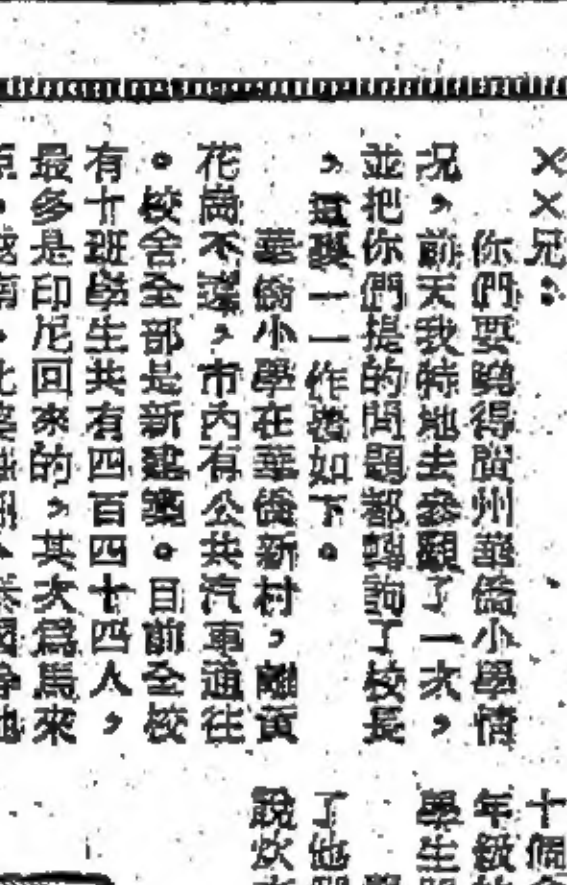 ××兄：
你們要曉得廣州華僑小學情
況，前天我特地去參觀了一次，
並把你們提的問題都轉詢了校長
，這裏一一作答如下。
華僑小學在華僑新村，離黃
花崗不遠，市內有公共汽車通往
。校舍全部是新建築。目前全校
有十班學生共有四百四十四人，
最多是印尼回來的，其次爲馬來
十個
年級
學生
了他
說炊